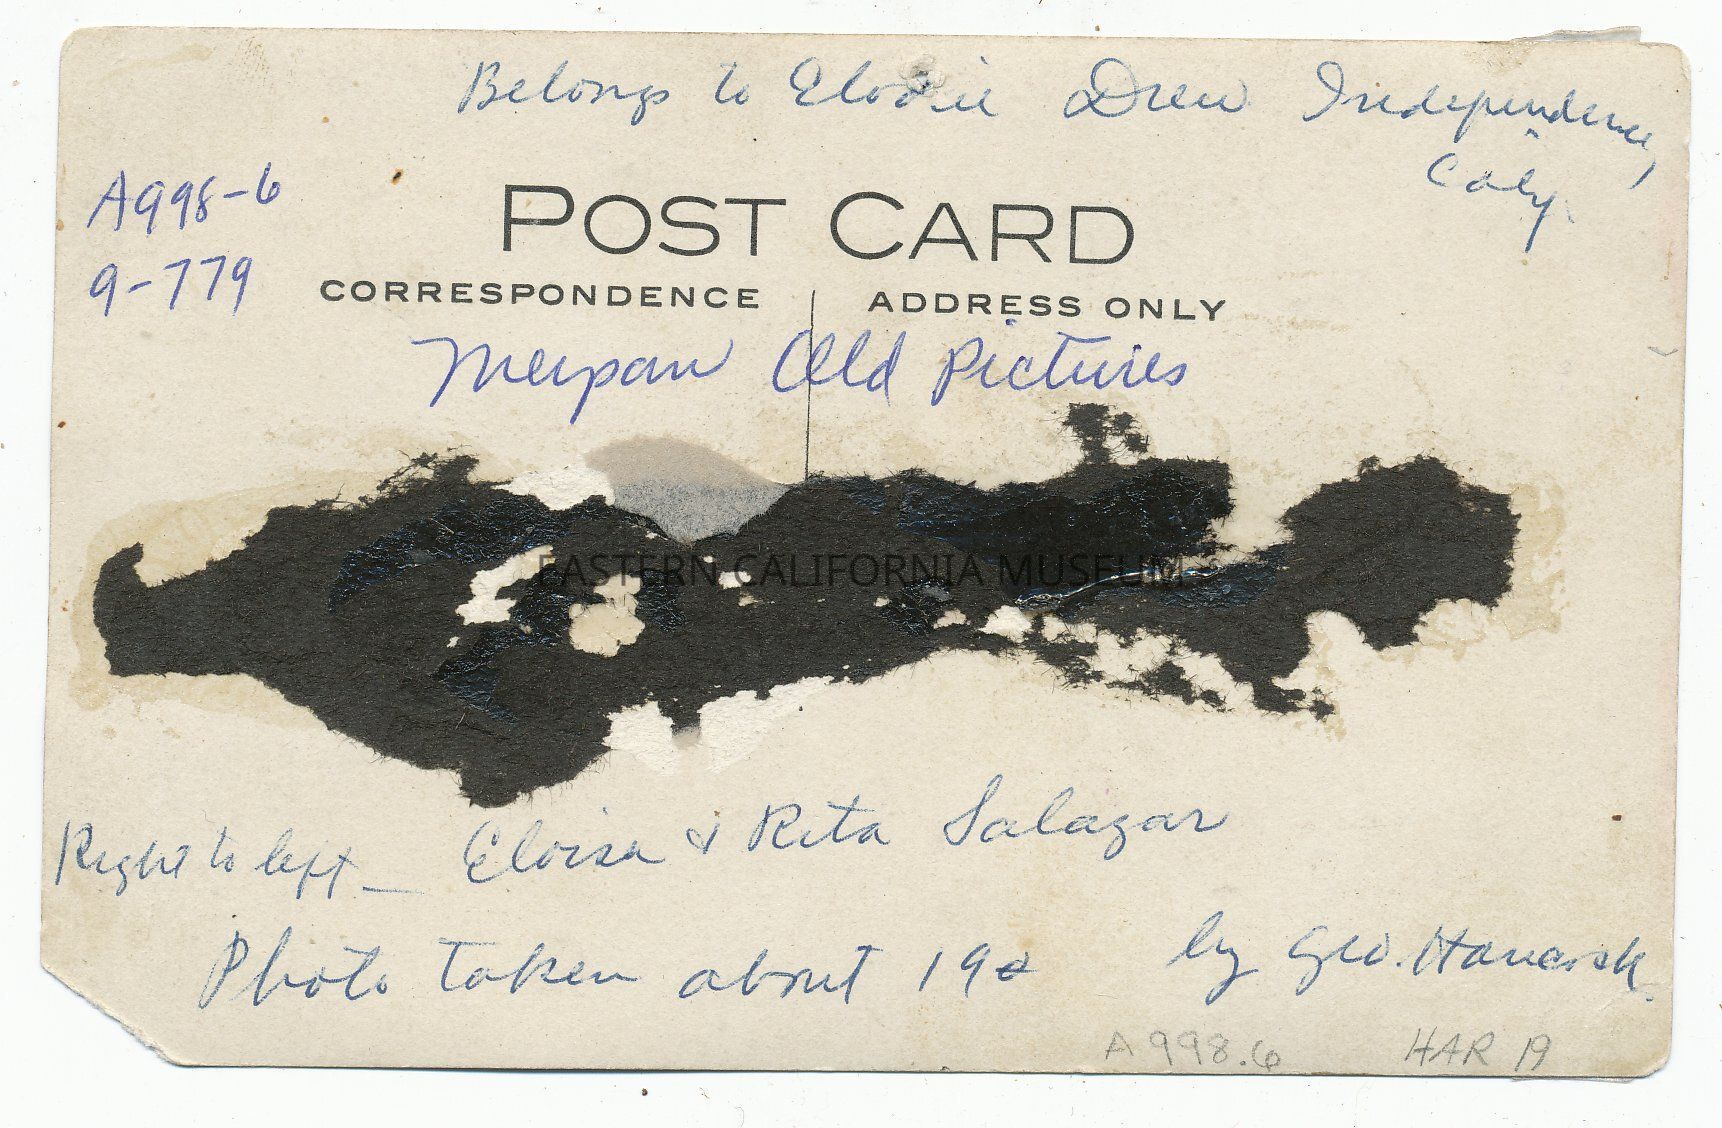 Belongs to Elodie Drew Independence,
Caly
A998-6
9-779
POST CARD
CORRESPONDENCE ADDRESS ONLY
Old Pictures
EASTERN CALIFORNIA MUSEUM
Right to left — Eloisa & Rita Salazar
Photo taken about 190 by Geo. Hancock.
A998.6 HAR 19